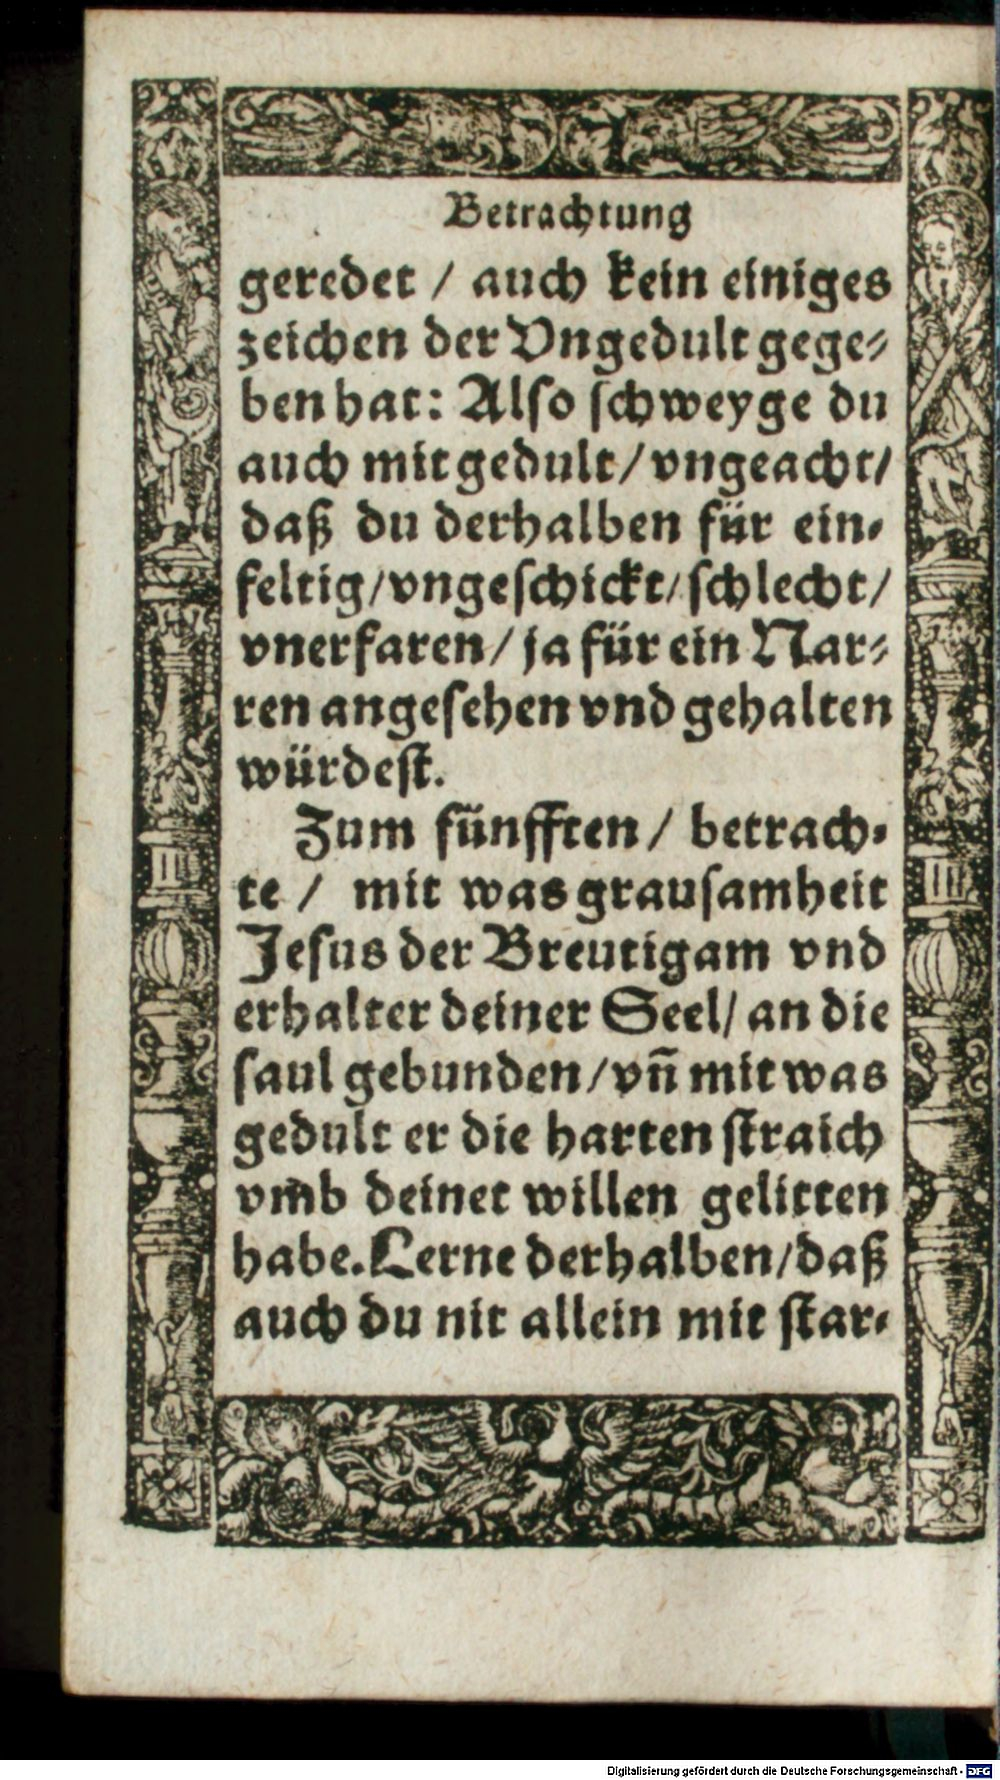 Betrachtung
geredet / auch kein einiges
zeichen der Vngedult gege-
ben hat: Also schweyge du
auch mit gedult / vngeacht /
daß du derhalben für ein-
feltig / vngeschickt / schlecht /
vnerfaren / ja für ein Nar-
ren angesehen vnd gehalten
würdest.
Zum fünfften / betrach-
te / mit was grausamheit
Jesus der Breutigam vnd
erhalter deiner Seel / an die
saul gebunden / vñ mit was
gedult er die harten straich
vmb deinet willen gelitten
habe. Lerne derhalben / daß
auch du nit allein mit star-
Digitalisierung gefördert durch die Deutsche Forschungsgemeinschaft - DFG